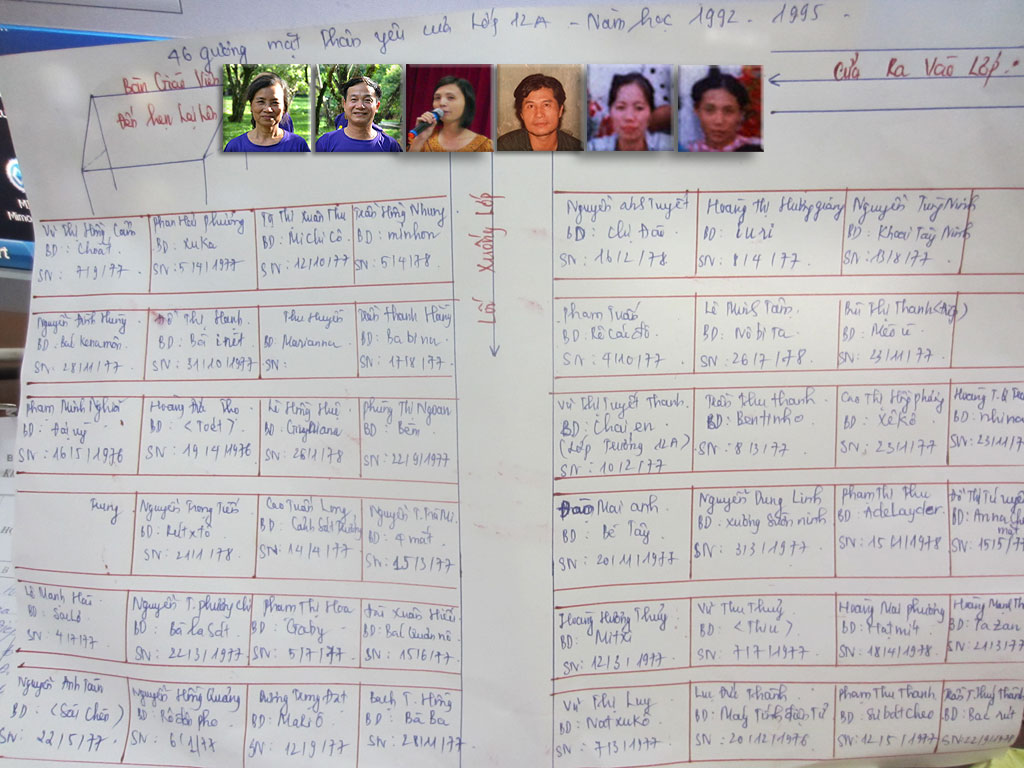 46 gương mặt thân yêu của Lớp 12A - Năm học 1992 - 1995
Bàn Giáo Viên
Cửa Ra Vào Lớp.
Đến hẹn lại lên
Lối Xuống Lớp
Vũ Thị Hồng Cẩm
BD: Choắt
SN: 7/9/77
Phan Hải Phượng
BD: Xuka
SN: 5/4/1977
Tạ Thị Xuân Thu
BD: Mi Chi Cô
SN: 12/10/77
Trần Hồng Nhung
BD: minhon
SN: 5/4/78
Nguyễn ánh Tuyết
BD: Chị Đào
SN: 16/2/78
Hoàng Thị Hương giang
BD: iuri
SN: 8/4/77
Nguyễn Tuỳ Ninh
BD: Khoai Tây Ninh
SN: 13/8/77
Nguyễn Đình Hưng
BD:
SN: 28/11/77
Đỗ Thị Hạnh
BD: Bôi
SN: 31/10/1977
Thu Huyền
BD: Marianna
SN:
Trần Thanh Hằng
BD: Ba bi na
SN: 17/8/77
Phạm Tuấn
BD: Rê các đô
SN: 4/10/77
Lê Minh Tâm
BD: Nô bi ta
SN: 26/7/78
Bùi Thị Thanh
BD: Mèo ú
SN: 23/11/77
Phạm Minh Nghĩa
BD: Đại uý
SN: 16/5/1976
Hoàng Thọ
BD: <Toét>
SN: 19/4/1976
Lê Hồng Huệ
BD:
SN: 26/1/78
Phùng Thị Ngoan
BD: Bém
SN: 22/9/1977
Vũ Thị Tuyết Thanh
BD: Chai en
(Lớp Trưởng 12A)
SN: 10/2/77
Trần Thu Thanh
BD: Bentinho
SN: 8/3/77
Cao Thị Hồng
BD: Xê Kô
SN: 23/1/77
Hoàng T.
BD: nhi
SN: 23/11/77
Trung
Nguyễn Trọng Tiến
BD: Rut x tô
SN: 21/1/78
Cao Tuấn Long
BD: Cảnh Sát Trưởng
SN: 14/4/77
Nguyễn T. Trà Mi
BD: 4 mắt
SN: 15/3/77
Đào Mai anh
BD: Bé Tây
SN: 20/11/1977
Nguyễn Dung Linh
BD: xương sườn ninh
SN: 3/3/1977
Phạm Thị Thu
BD: Adelayder
SN: 15/1/1978
Đỗ Thị Tú
BD: Anna
SN: 15/5/77
Lê Mạnh Hải
BD:
SN: 4/7/77
Nguyễn T. Phương Chi
BD: Ba la Sát
SN: 22/3/1977
Phạm Thị Hoa
BD: Gaby
SN: 5/7/77
Bùi Xuân Hiếu
BD:
SN: 15/6/77
Hoàng Hương Thuỷ
BD: Mitxi
SN: 12/3/1977
Vũ Thu Thuỷ
BD: <Thiu>
SN: 7/7/1977
Hoàng Mai phương
BD: Hạt mít
SN: 18/4/1978
Hoàng Mạnh
BD: Ta zan
SN: 21/3/77
Nguyễn Anh Tuấn
BD: (Sái Chéo)
SN: 22/5/77
Nguyễn Hồng Quảng
BD:
SN: 6/1/77
Dương Trung Đạt
BD: Mari ô
SN: 12/9/77
Bạch T. Hồng
BD: Bà Ba
SN: 28/11/77
Vũ Thị Luy
BD: Natxukô
SN: 7/3/1977
Lục Đức Thành
BD: Máy Tính điện Tử
SN: 20/12/1976
Phạm Thu Thanh
BD:
SN: 12/5/1977
Trần T. Thuý
BD:
SN: